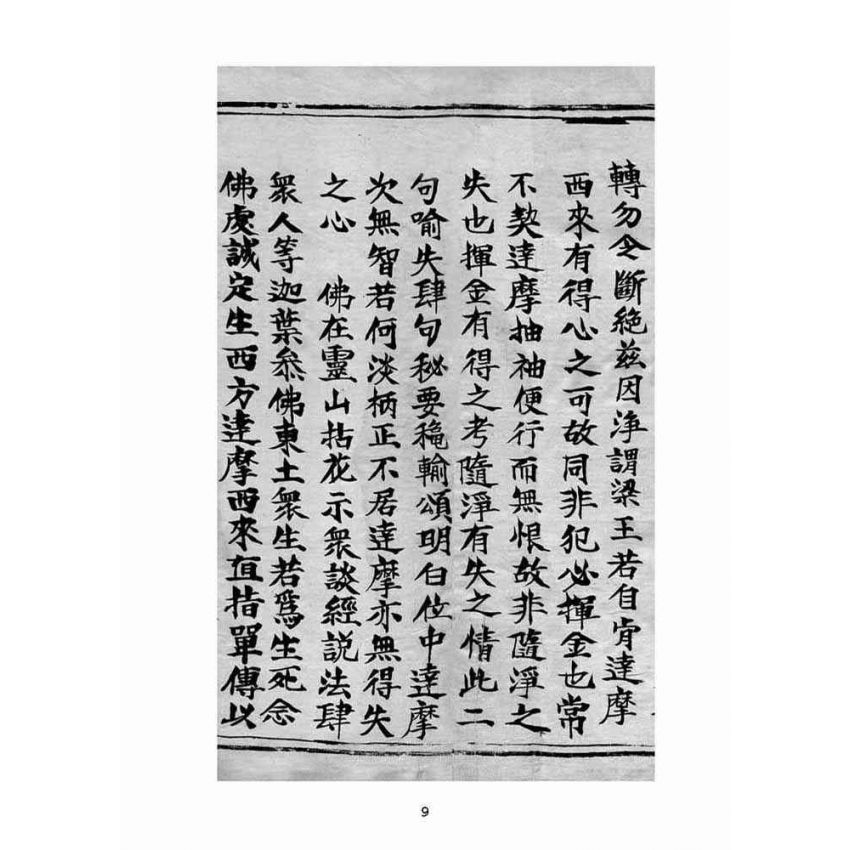 轉勿令斷絶茲因淨謂梁王若自肯達摩
西來有得心之可故同非犯必揮金也常
不契達摩抽袖便行而無恨故非隨淨之
失也揮金有得之考隨淨有失之情此二
句喻失肆句秘要穐輸頌明白位中達摩
次無智若何淡柄正不居達摩亦無得失
之心　佛在靈山拈花示衆談經説法肆
衆人等迦葉叅佛東土衆生若爲生死念
佛虔誠定生西方達摩西來直指單傳以
9